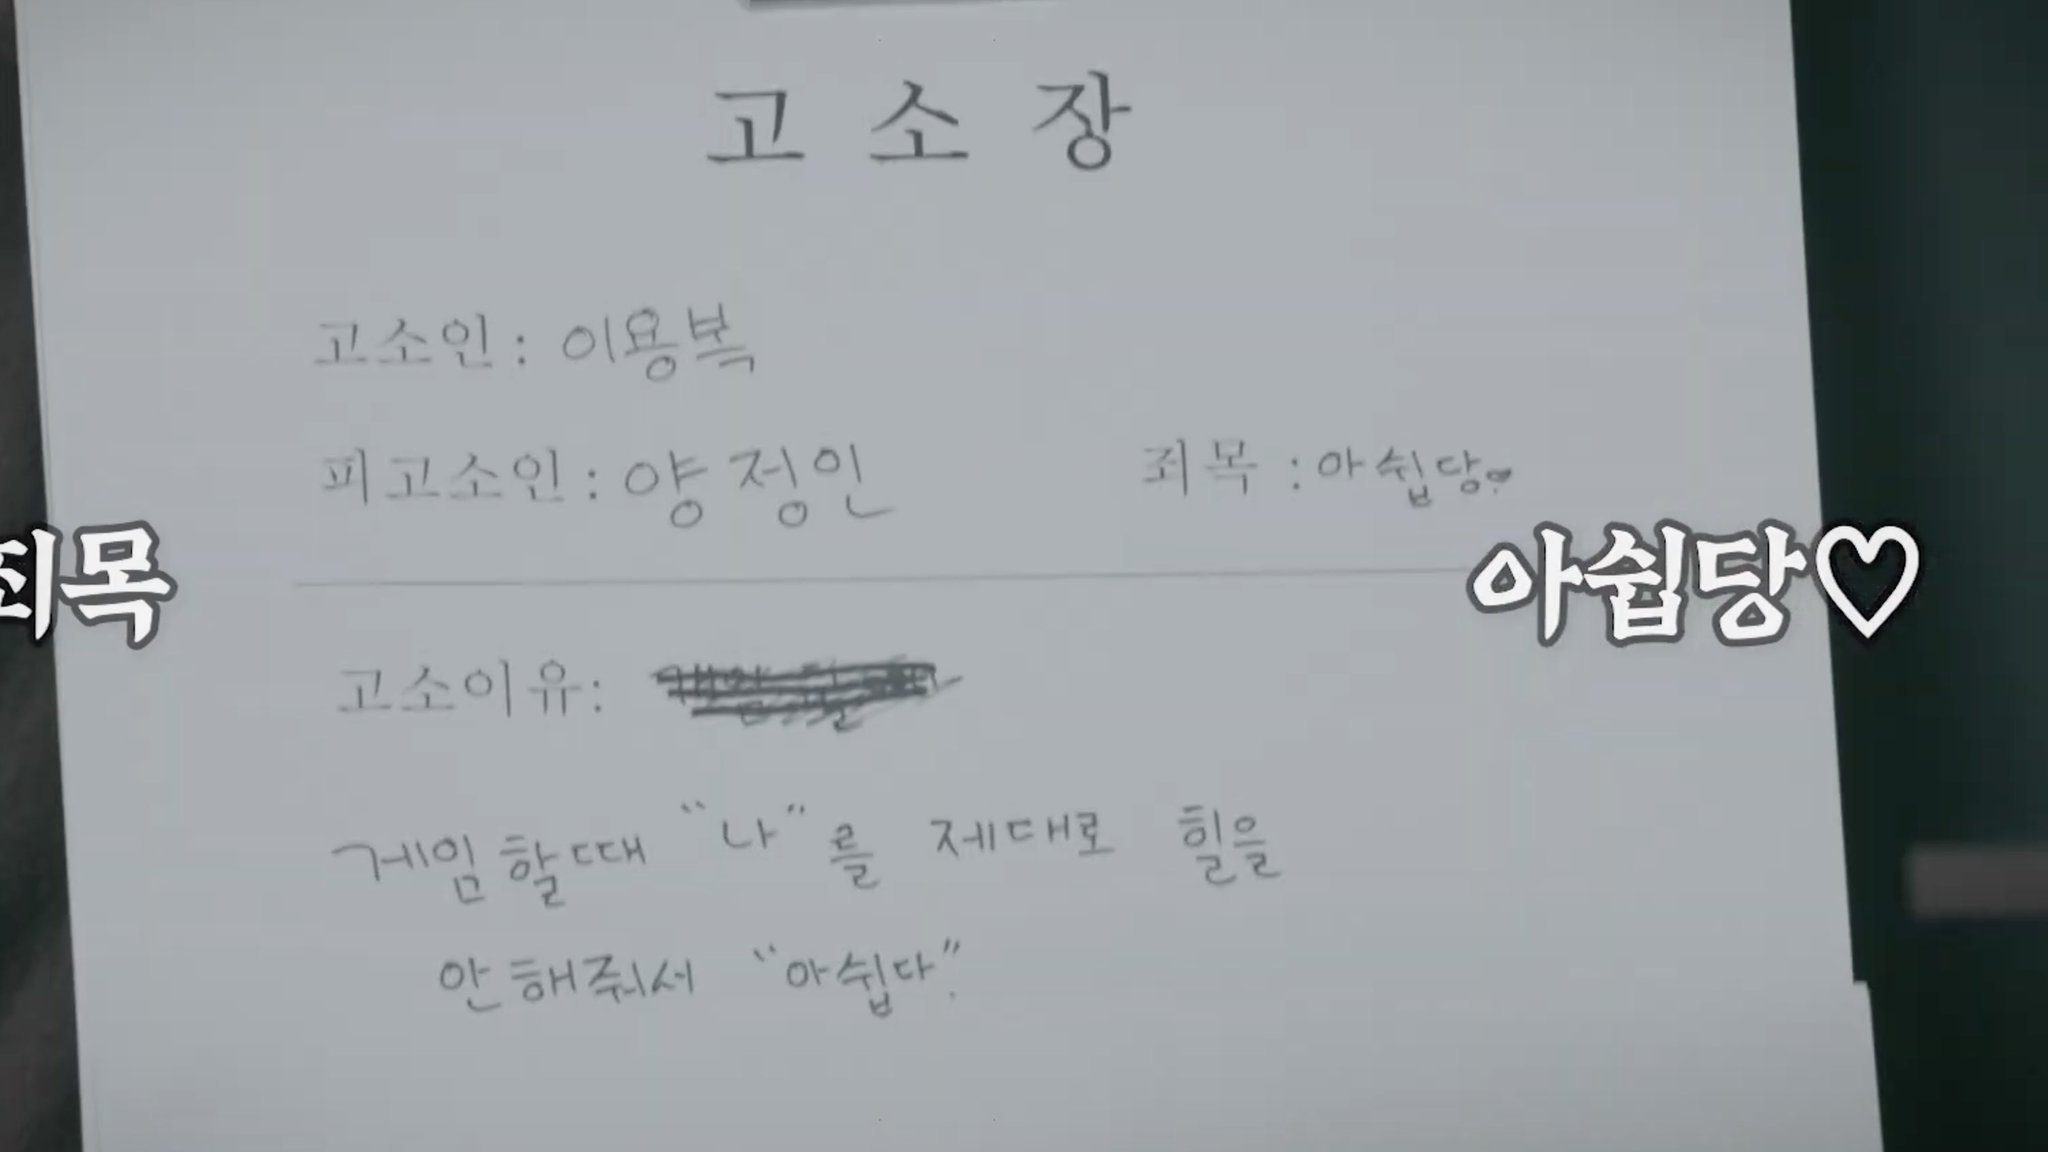 고소장
고소인: 이용복
피고소인: 양정인
죄목: 아쉽당♥
죄목
아쉽당♡
고소이유:
게임할때 "나"를 제대로 힐을
안해줘서 "아쉽다".